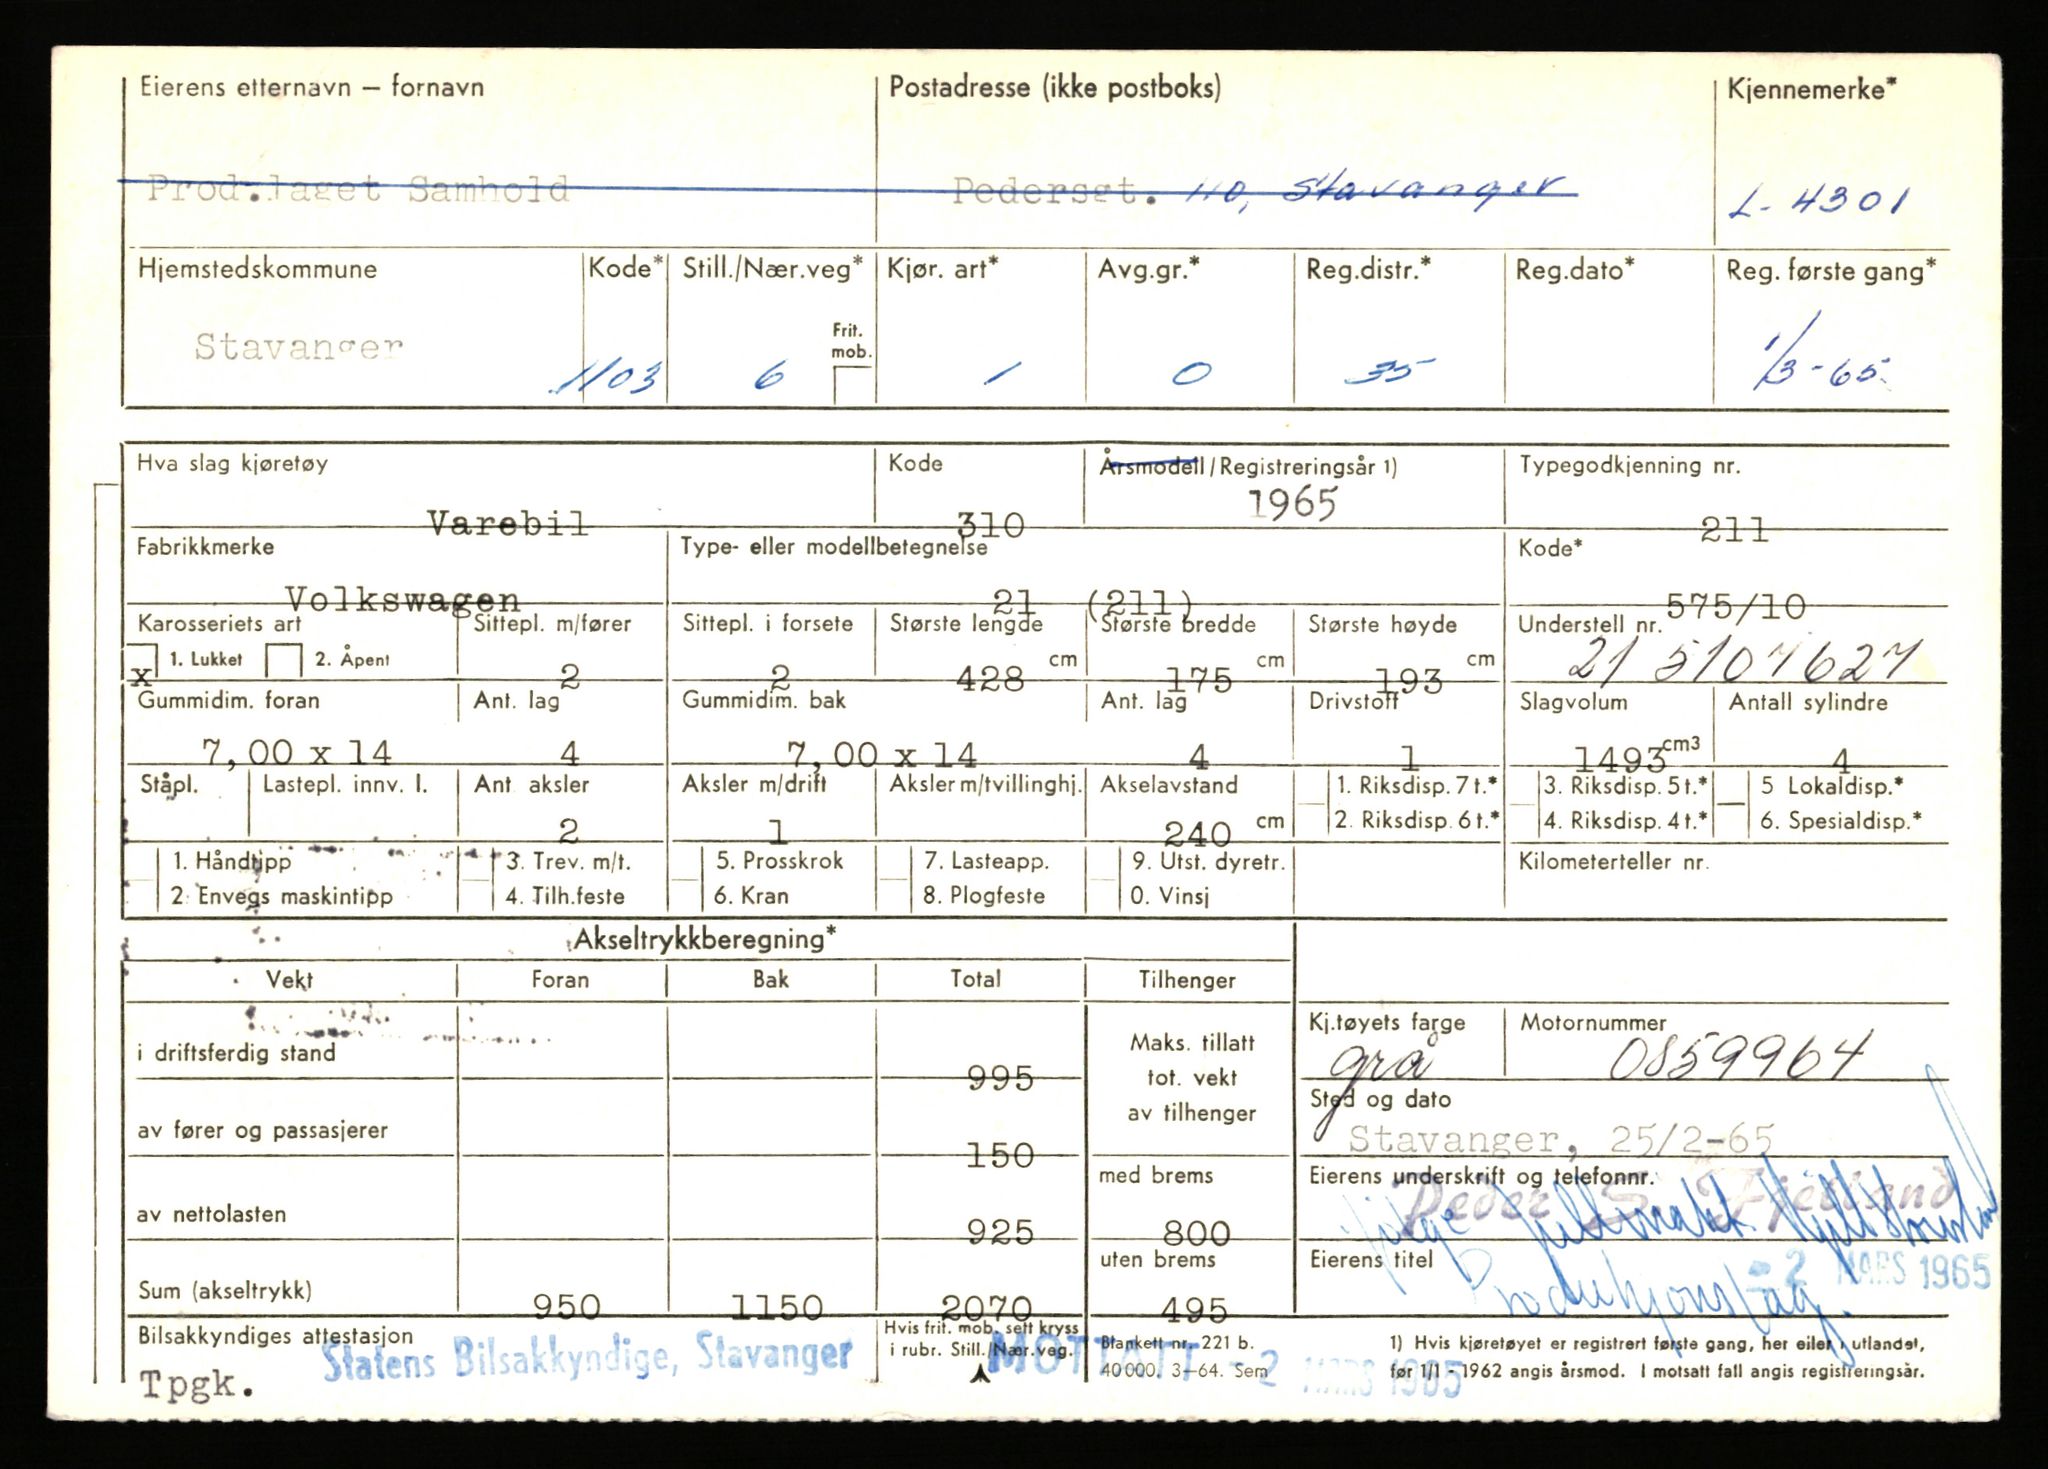 Eierens etternavn – fornavn Postadresse (ikke postboks) Kjennemerke*
Prod.laget Samhold Pedersgt. 110, Stavanger L-4301
Hjemstedskommune Kode* Still./Nær.veg* Kjør. art* Avg.gr.* Reg.distr.* Reg.dato* Reg. første gang*
Frit.
mob.
Stavanger 1103 6 1 0 35 1/3-65
Hva slag kjøretøy Kode Årsmodell/Registreringsår 1) Typegodkjenning nr.
Varebil 310 1965 211
Fabrikkmerke Type- eller modellbetegnelse Kode*
Volkswagen 21 (211) 575/10
Karosseriets art Sittepl. m/fører Sittepl. i forsete Største lengde Største bredde Største høyde Understell nr.
x 1. Lukket 2. Åpent 2 2 428 cm 175 cm 193 cm 21 5107627
Gummidim. foran Ant. lag Gummidim. bak Ant. lag Drivstoff Slagvolum Antall sylindre
7,00 x 14 4 7,00 x 14 4 1 1493 cm3 4
Ståpl. Lastepl. innv. l. Ant aksler Aksler m/drift Aksler m/tvillinghj. Akselavstand 1. Riksdisp. 7 t.* 3. Riksdisp. 5 t.* 5 Lokaldisp.*
2 1 240 cm 2. Riksdisp. 6 t.* 4. Riksdisp. 4 t.* 6. Spesialdisp.*
1. Håndtipp 3. Trev. m/t. 5. Prosskrok 7. Lasteapp. 9. Utst. dyretr. Kilometerteller nr.
2. Envegs maskintipp 4. Tilh.feste 6. Kran 8. Plogfeste 0. Vinsj
Akseltrykkberegning*
Vekt Foran Bak Total Tilhenger
Kj.tøyets farge Motornummer
i driftsferdig stand 995 Maks. tillatt grå 0859964
tot. vekt
av tilhenger
Sted og dato
av fører og passasjerer 150 Stavanger, 25/2-65
med brems Eierens underskrift og telefonnr.
Peder S. Fjelland
av nettolasten 925 800
uten brems Eierens titel
- 2 MARS 1965
Sum (akseltrykk) 950 1150 2070 495
Bilsakkyndiges attestasjon Hvis frit. mob. sett kryss Blankett nr. 221 b. 1) Hvis kjøretøyet er registrert første gang, her eller i utlandet,
Statens Bilsakkyndige, Stavanger i rubr. Still./Nær.veg. MOTTATT - 2 MARS 1965
Tpgk. 40 000. 3–64. Sem før 1/1 - 1962 angis årsmod. I motsatt fall angis registreringsår.